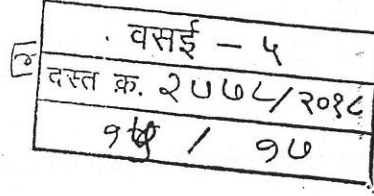 वसई - ५
दस्त क्र. २७७८/२०१८
/ १७